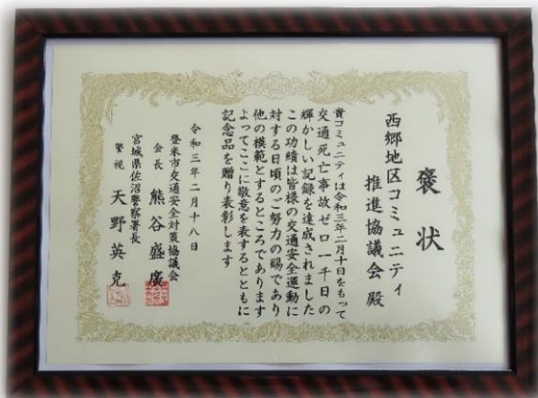 褒状
西郷地区コミュニティ
推進協議会 殿
貴コミュニティは令和三年二月十日をもって
交通死亡事故ゼロ一千日の
輝かしい記録を達成されました
この功績は皆様の交通安全運動に
対する日頃のご努力の賜であり
他の模範とするところであります
よってここに敬意を表するとともに
記念品を贈り表彰します
令和三年二月十八日
登米市交通安全対策協議会
会長 熊谷盛廣
宮城県佐沼警察署長
警視 天野英克